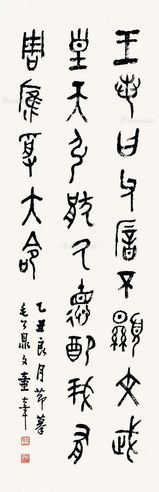 王若曰父厝不顯文武
皇天弘厭厥德配我有
周膺受大命
乙丑良月節摹
毛公鼎文